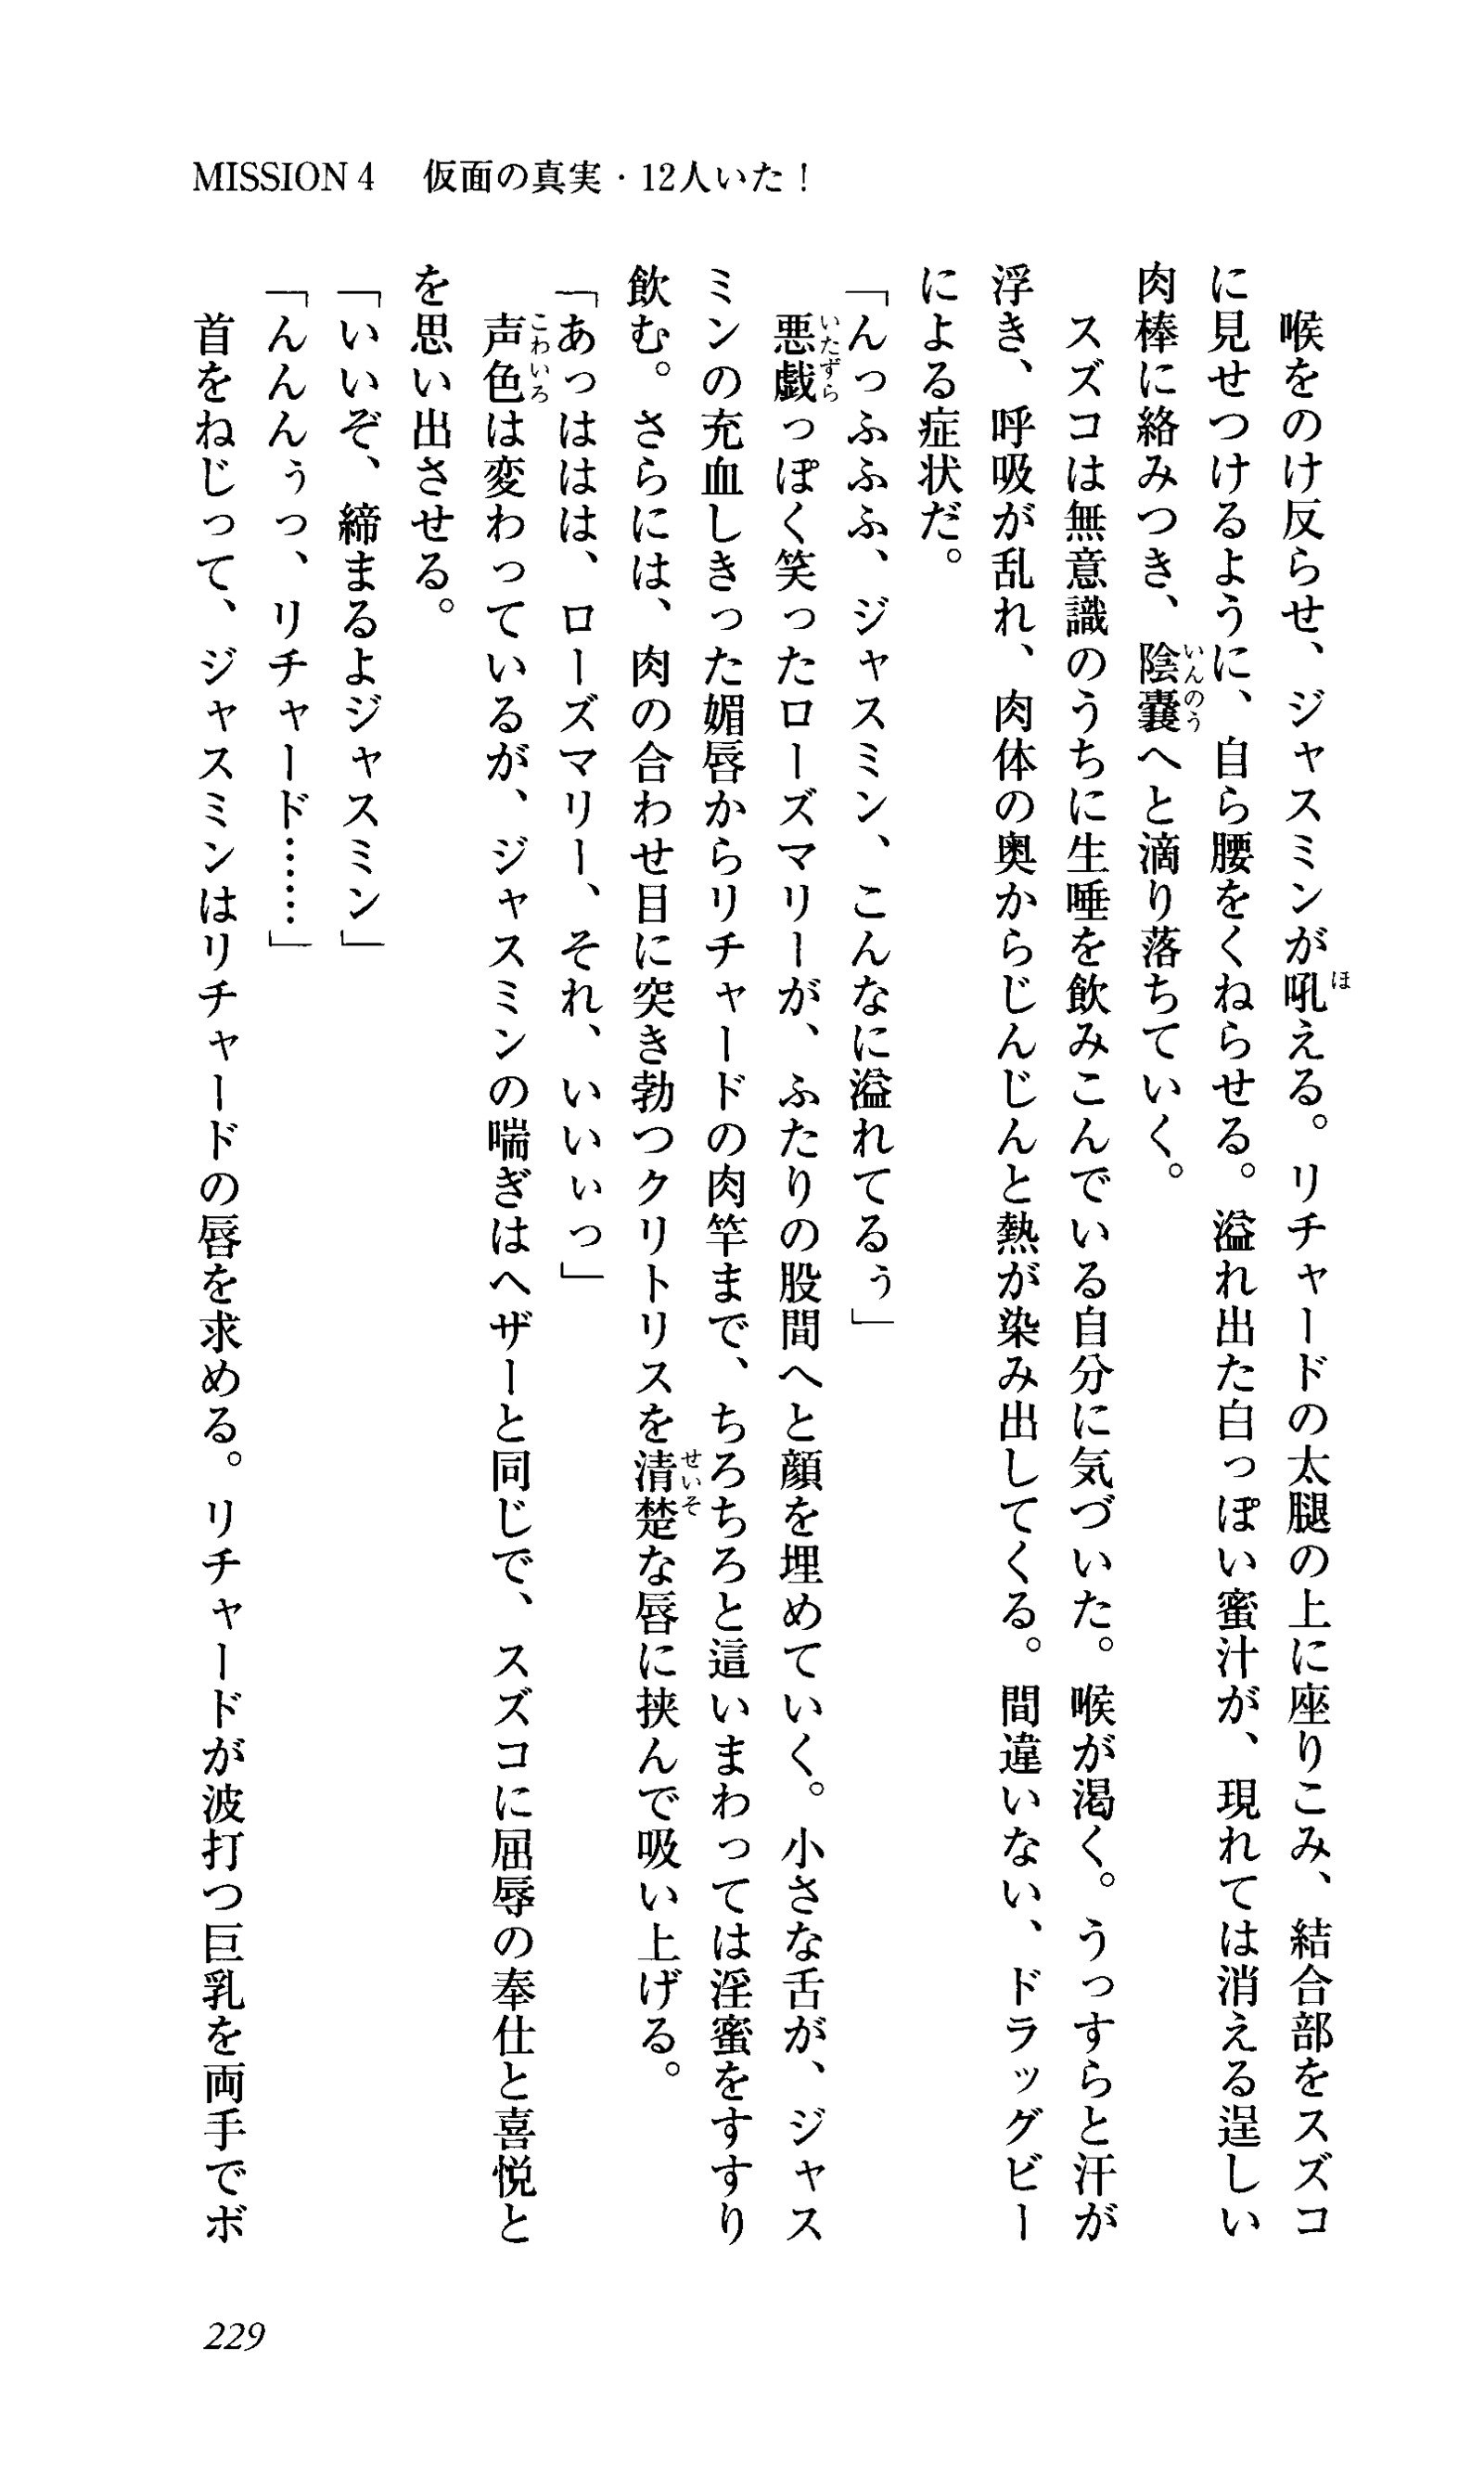 MISSION 4　仮面の真実・12人いた！
　喉をのけ反らせ、ジャスミンが吼える。リチャードの太腿の上に座りこみ、結合部をスズコ
に見せつけるように、自ら腰をくねらせる。溢れ出た白っぽい蜜汁が、現れては消える逞しい
肉棒に絡みつき、陰嚢へと滴り落ちていく。
　スズコは無意識のうちに生唾を飲みこんでいる自分に気づいた。喉が渇く。うっすらと汗が
浮き、呼吸が乱れ、肉体の奥からじんじんと熱が染み出してくる。間違いない、ドラッグビー
による症状だ。
「んっふふふ、ジャスミン、こんなに溢れてるぅ」
　悪戯っぽく笑ったローズマリーが、ふたりの股間へと顔を埋めていく。小さな舌が、ジャス
ミンの充血しきった媚唇からリチャードの肉竿まで、ちろちろと這いまわっては淫蜜をすすり
飲む。さらには、肉の合わせ目に突き勃つクリトリスを清楚な唇に挟んで吸い上げる。
「あっははは、ローズマリー、それ、いいぃっ」
　声色は変わっているが、ジャスミンの喘ぎはヘザーと同じで、スズコに屈辱の奉仕と喜悦と
を思い出させる。
「いいぞ、締まるよジャスミン」
「んんんぅっ、リチャード……」
　首をねじって、ジャスミンはリチャードの唇を求める。リチャードが波打つ巨乳を両手でボ
229